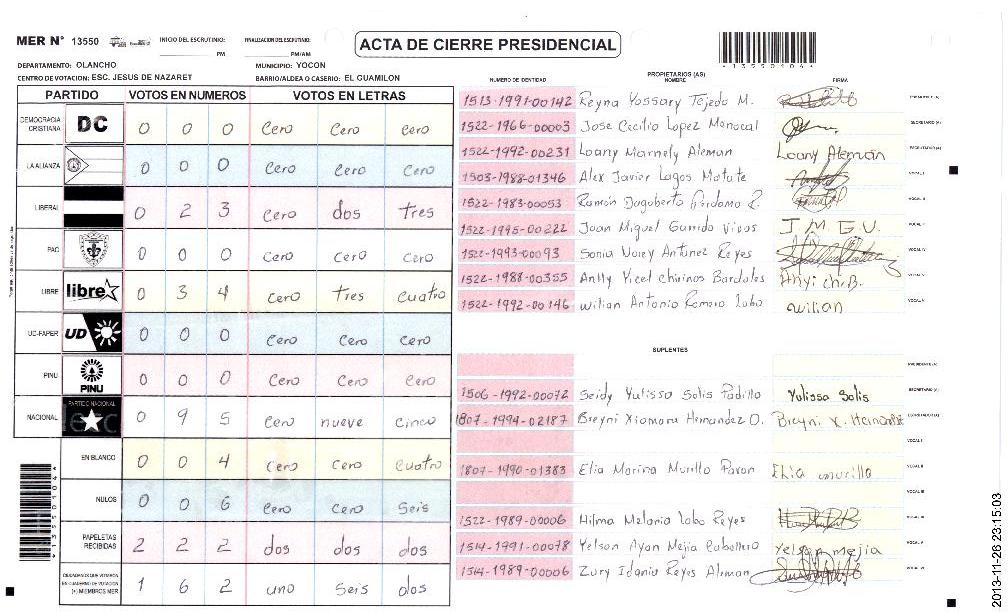 MER N° 13550 INICIO DEL ESCRUTINIO: PM FINALIZACION DEL ESCRUTINIO: PM/AM
ACTA DE CIERRE PRESIDENCIAL
*13550104*
DEPARTAMENTO: OLANCHO MUNICIPIO: YOCON
CENTRO DE VOTACION: ESC. JESUS DE NAZARET BARRIO/ALDEA O CASERIO: EL GUAMILON
PARTIDO VOTOS EN NUMEROS VOTOS EN LETRAS
DEMOCRACIA CRISTIANA DC 0 0 0 Cero Cero cero
LA ALIANZA 0 0 0 Cero Cero Cero
LIBERAL 0 2 3 Cero dos tres
PAC 0 0 0 Cero Cero Cero
LIBRE libre 0 3 4 Cero Tres Cuatro
UD-FAPER UD 0 0 0 Cero Cero Cero
PINU PINU 0 0 0 Cero Cero Cero
NACIONAL PARTIDO NACIONAL 0 9 5 Cero nueve Cinco
EN BLANCO 0 0 4 Cero Cero Cuatro
NULOS 0 0 6 Cero Cero Seis
PAPELETAS RECIBIDAS 2 2 2 dos dos dos
CIUDADANOS QUE VOTARON EN CUADERNO DE VOTACION (+) MIEMBROS MER 1 6 2 uno Seis dos
PROPIETARIOS (AS)
NUMERO DE IDENTIDAD NOMBRE FIRMA
1513-1991-00142 Reyna Yossary Tejedo M.
1522-1966-00003 Jose Cecilio Lopez Menocal SECRETARIO (A)
1522-1992-00231 Loany Marnely Aleman Loany Alemán
1503-1988-01346 Alex Javier Lagos Matute VOCAL I
1522-1983-00053 Ramón Dagoberto R. VOCAL II
1522-1995-00222 Juan Miguel Garrido Vivas J.M.G.V.
1522-1993-00093 Sonia Antunez Reyes VOCAL IV
1522-1988-00355 Yicel Chirinos Bardales Anyi Ch.B.
1522-1992-00146 Wilian Antonio Romero Lobo wilian
SUPLENTES
1506-1992-00072 Seidy Yulissa Solis Padilla Yulissa Solis SECRETARIO (A)
1807-1994-02187 Breyni Xiomara Hernandez O.
VOCAL I
1807-1990-01383 Elia Marina Murillo Pavon Elia murillo VOCAL II
VOCAL III
1522-1989-00006 Hilma Melania Lobo Reyes
1514-1991-00078 Yelson Ayan Mejia Caballero Yelson mejia VOCAL V
1514-1989-00006 Zury Idania Reyes Aleman
*13550104*
2013-11-26 23:15:03